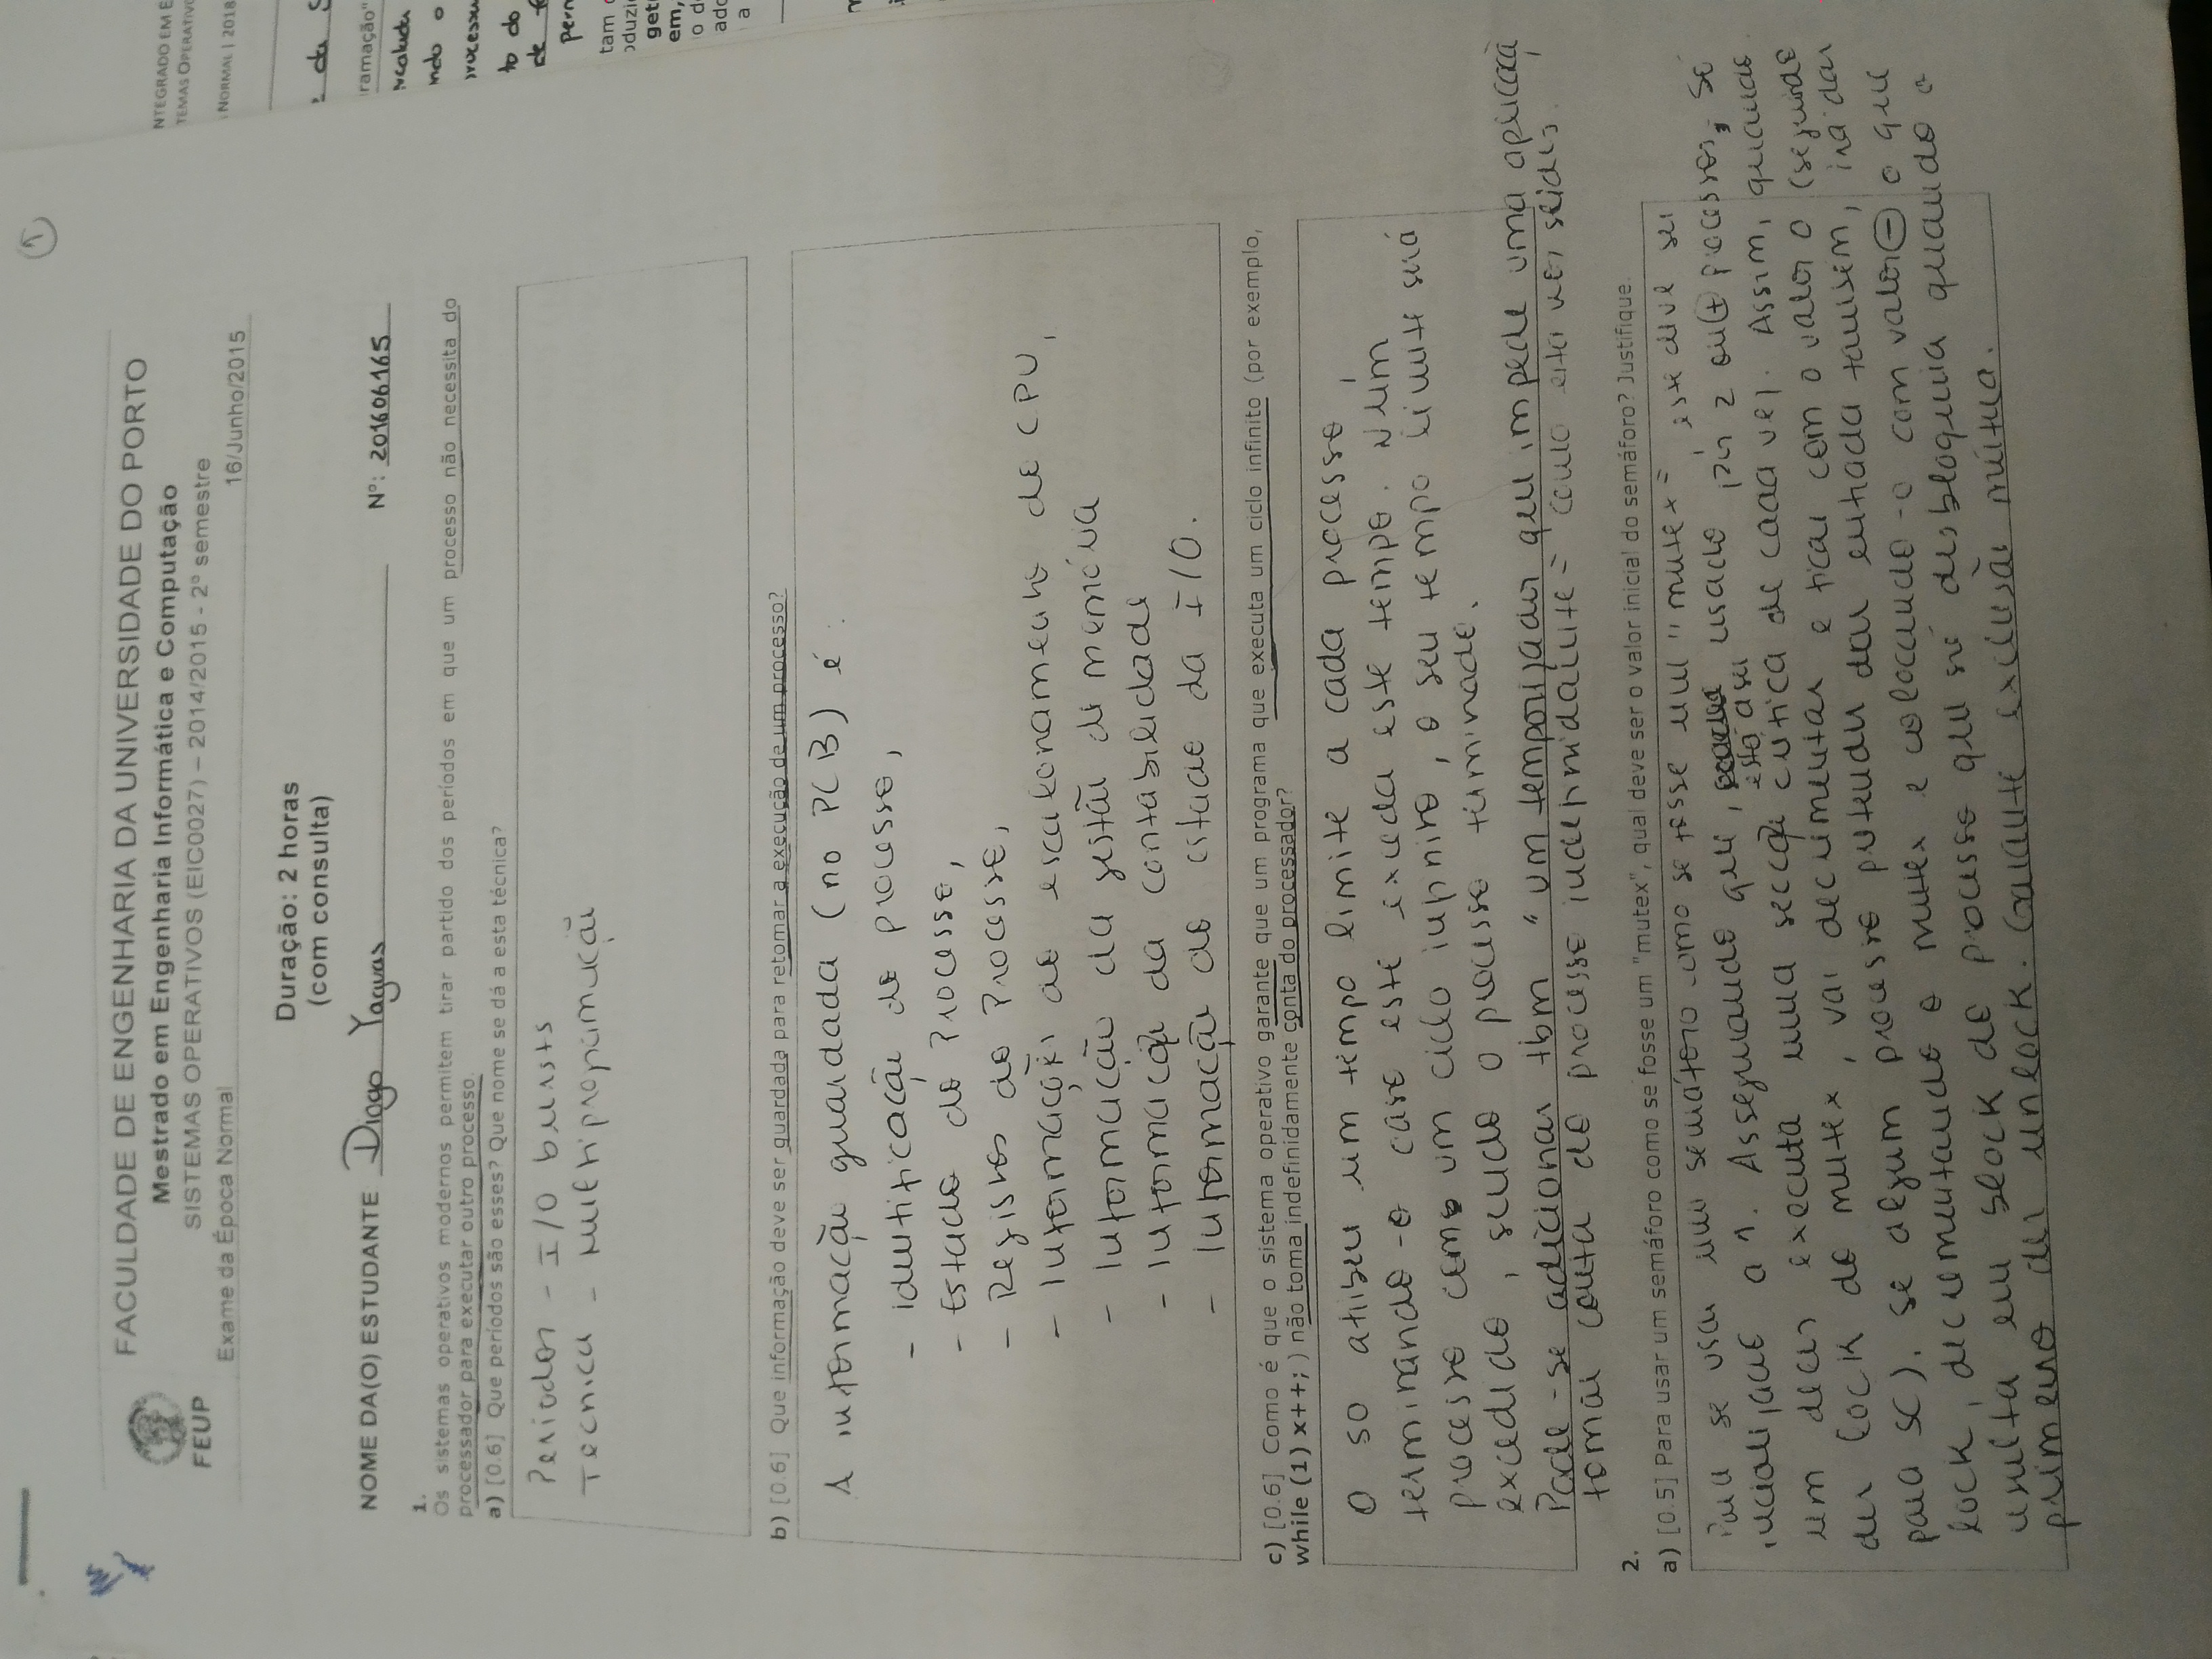 FACULDADE DE ENGENHARIA DA UNIVERSIDADE DO PORTO
Mestrado em Engenharia Informática e Computação
SISTEMAS OPERATIVOS (EIC0027) – 2014/2015 - 2º semestre
FEUP
Exame da Época Normal
16/Junho/2015
Duração: 2 horas
(com consulta)
NOME DA(O) ESTUDANTE Diogo Yaguas Nº: 201606165
1.
Os sistemas operativos modernos permitem tirar partido dos períodos em que um processo não necessita do
processador para executar outro processo.
a) [0.6] Que períodos são esses? Que nome se dá a esta técnica?
Periodos - I/O bursts
Tecnica - Multiprogramação
b) [0.6] Que informação deve ser guardada para retomar a execução de um processo?
A informação guardada (no PCB) é:
- identificação do processo,
- Estado do Processo,
- Registos do Processo,
- Informações do escalonamento do CPU,
- Informação da gestão de memória
- Informação da contabilidade
- Informação do estado da I/O.
c) [0.6] Como é que o sistema operativo garante que um programa que executa um ciclo infinito (por exemplo,
while (1) x++; ) não toma indefinidamente conta do processador?
O SO atribui um tempo limite a cada processo,
terminando-o caso este exceda este tempo. Num
processo como um ciclo infinito, o seu tempo limite será
excedido, sendo o processo terminado.
Pode-se adicionar tbm "um temporizador que impede uma aplicaçã
tomar conta do processo indefinidamente" como está nos slides
2.
a) [0.5] Para usar um semáforo como se fosse um "mutex", qual deve ser o valor inicial do semáforo? Justifique.
Para se usar um semáforo como se fosse um "mutex", este deve ser
inicializado a 1. Assegurando que, está a ser usado por 2 ou + processos, só
um deles executa uma secção crítica de cada vez. Assim, quando
der lock do mutex, vai decrementar e ficar com o valor 0 (seguindo
para SC). Se algum processo pretender dar entrada também, irá dar
lock, decrementando o mutex e colocando-o com valor - o que
resulta em block do processo que só desbloqueia quando o
primeiro der unlock. Garante exclusão mútua.
NTEGRADO EM E
TEMAS OPERATIVO
NORMAL | 2018
da S
ramação"
ncalada
ndo o
processu
to do
de
pern
tam
oduzi
get
em,
o d
ado
a